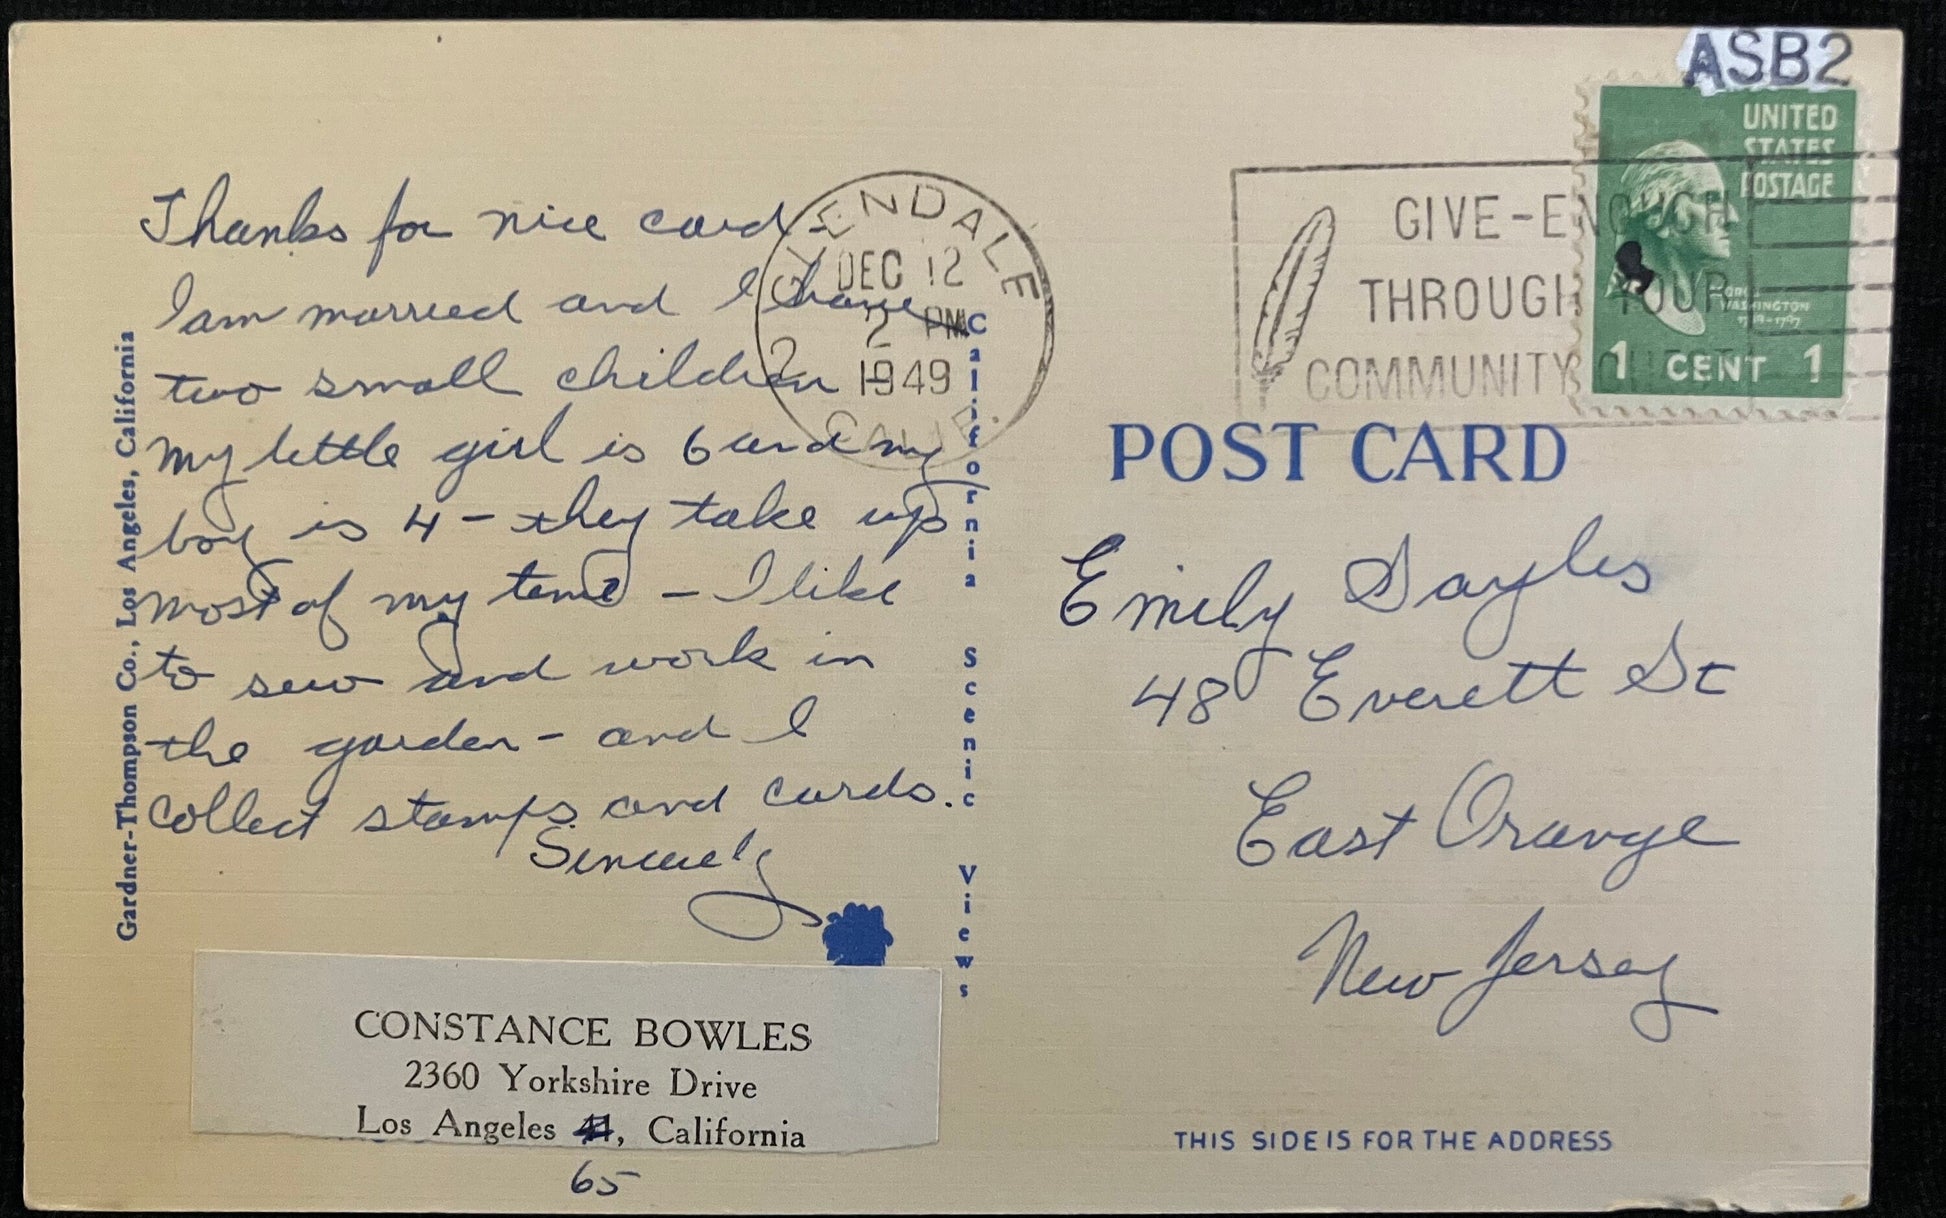 Thanks for nice card -
I am married and I have
two small children
my little girl is 6 and my
boy is 4 - they take up
most of my time - I like
to sew and work in
the garden - and I
collect stamps and cards.
Sincerely
CONSTANCE BOWLES
2360 Yorkshire Drive
Los Angeles, California
65
Gardner-Thompson Co., Los Angeles, California
California Scenic Views
GLENDALE
DEC 12
2 PM
1949
CALIF.
GIVE-ENOUGH
THROUGH YOUR
COMMUNITY CHEST
ASB2
UNITED
STATES
POSTAGE
GEORGE
WASHINGTON
1 CENT 1
POST CARD
Emily Sayles
48 Everett St
East Orange
New Jersey
THIS SIDE IS FOR THE ADDRESS